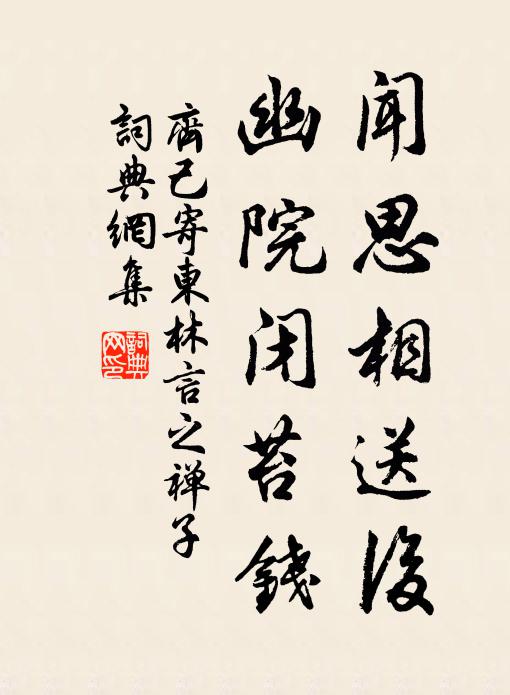 闻思相送後
幽院闭苔錢
齊己寄東林言之禅子
詞典網集
詞典网印